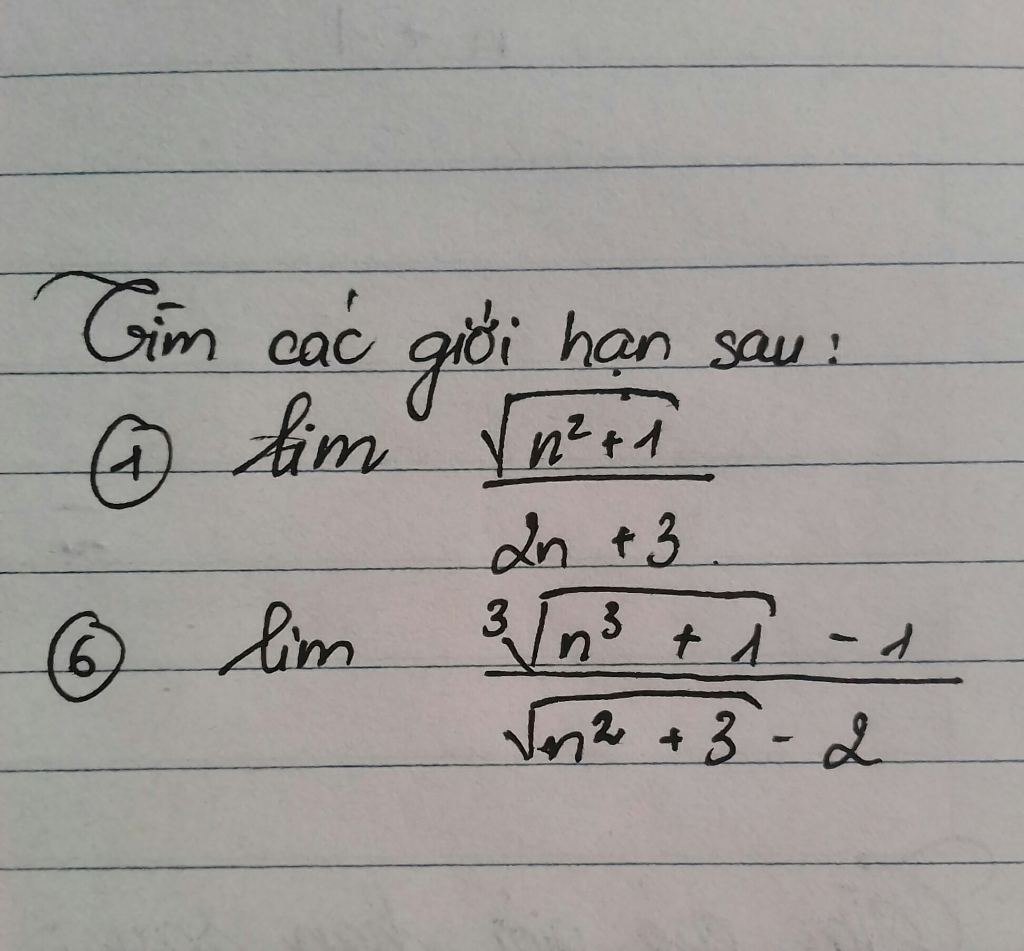 Tìm các giới hạn sau:
① lim \frac{\sqrt{n^2+1}}{2n+3}.
⑥ lim \frac{\sqrt[3]{n^3+1}-1}{\sqrt{n^2+3}-2}